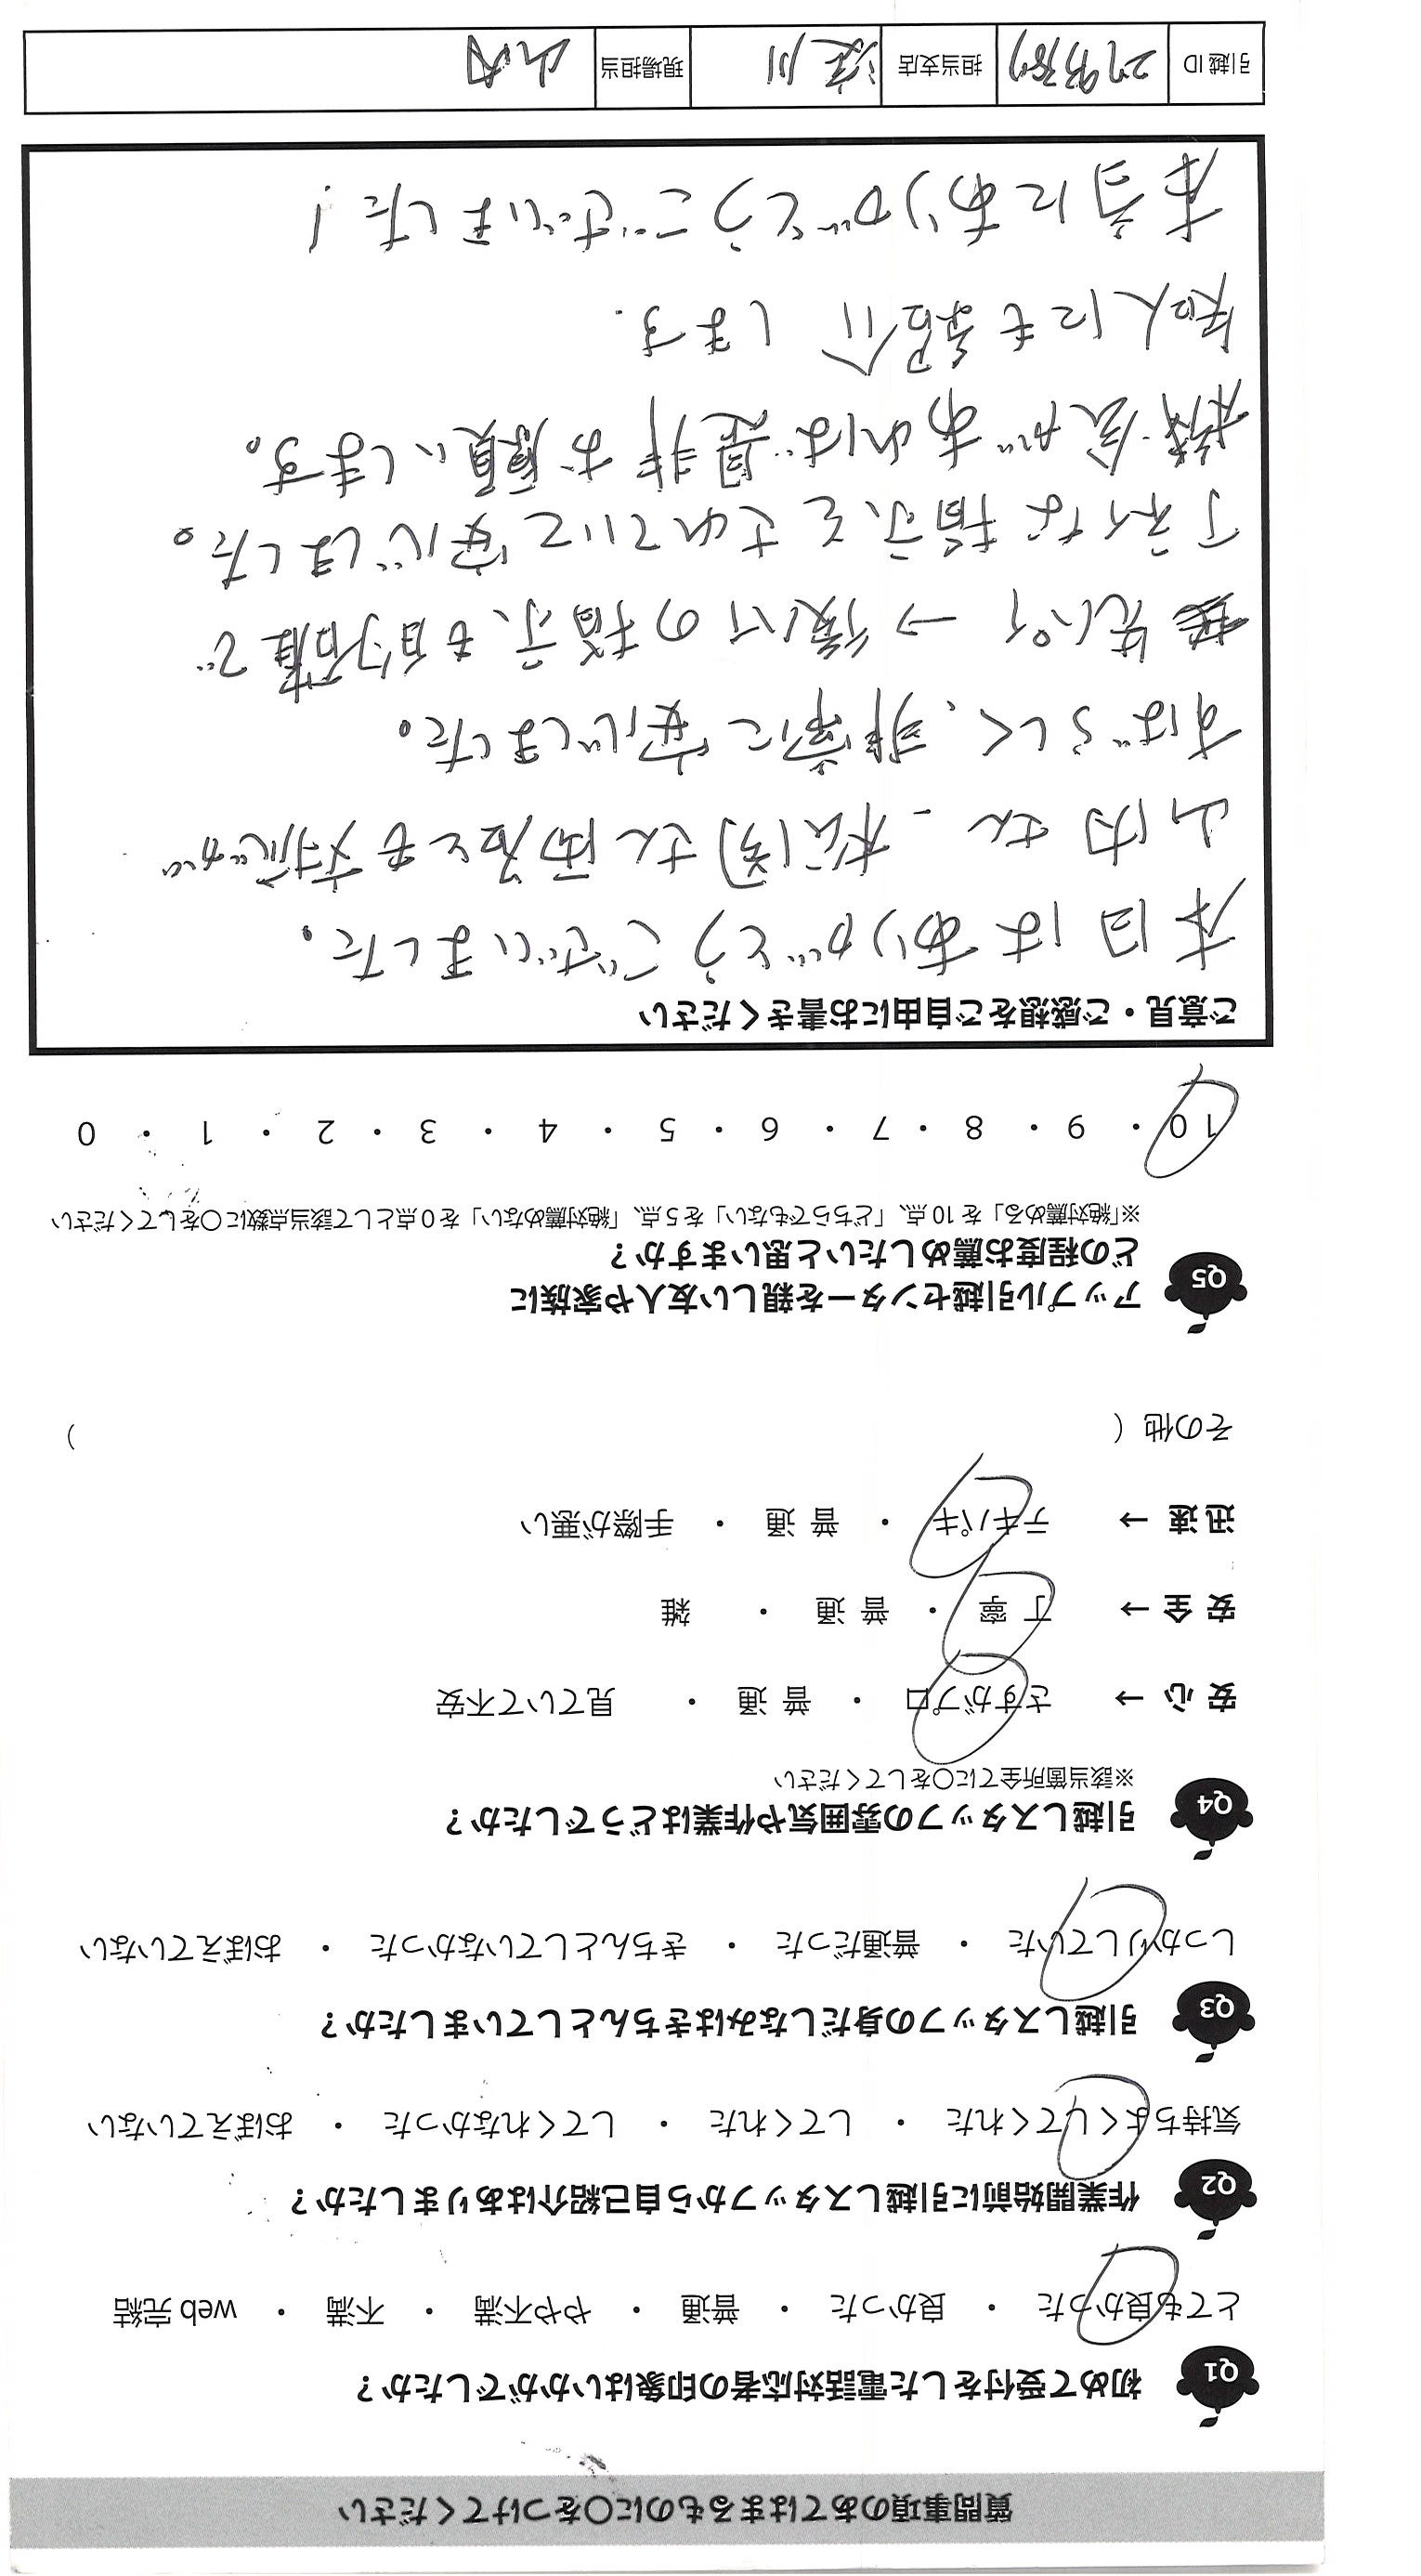 質問事項のあてはまるものに○をつけてください
Q1 初めて受付をした電話対応者の印象はいかがでしたか？
とても良かった ・ 良かった ・ 普通 ・ やや不満 ・ 不満 ・ web 完結
Q2 作業開始前に引越しスタッフから自己紹介はありましたか？
気持ちよくしてくれた ・ してくれた ・ してくれなかった ・ おぼえていない
Q3 引越しスタッフの身だしなみはきちんとしていましたか？
しっかりしていた ・ 普通だった ・ きちんとしていなかった ・ おぼえていない
Q4 引越しスタッフの雰囲気や作業はどうでしたか？
※該当箇所全てに○をしてください
安心 → さすがプロ ・ 普通 ・ 見ていて不安
安全 → 丁寧 ・ 普通 ・ 雑
迅速 → テキパキ ・ 普通 ・ 手際が悪い
その他 （ ）
Q5 アップル引越センターを親しい友人や家族に
どの程度お薦めしたいと思いますか？
※「絶対薦める」を 10 点、「どちらでもない」を 5 点、「絶対薦めない」を 0 点として該当点数に○をしてください
10 ・ 9 ・ 8 ・ 7 ・ 6 ・ 5 ・ 4 ・ 3 ・ 2 ・ 1 ・ 0
ご意見・ご感想をご自由にお書きください
本日はありがとうございました。
山内さん、松岡さん両名とも対応が
すばらしく、非常に安心しました。
先パイ → 後ハイの指示も的確で
丁ネイな指示をされていて安心しました。
機会があれば是非お願いします。
知人にも紹介します.
本当にありがとうございました！
引越 ID 担当支店 淀川 現場担当 山内